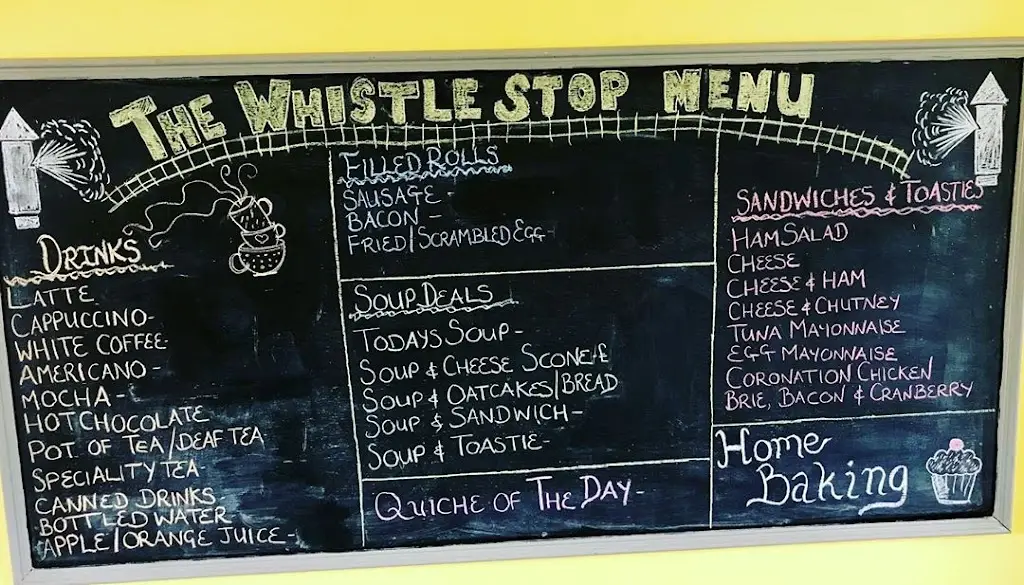 THE WHISTLE STOP MENU
DRINKS
LATTE
CAPPUCCINO-
WHITE COFFEE-
AMERICANO-
MOCHA-
HOT CHOCOLATE
POT. OF TEA/DEAF TEA
SPECIALITY TEA
CANNED DRINKS
BOTTLED WATER
APPLE/ORANGE JUICE-
FILLED ROLLS
SAUSAGE
BACON -
FRIED/SCRAMBLED EGG-
SOUP DEALS
TODAYS SOUP-
SOUP & CHEESE SCONE-£
SOUP & OATCAKES/BREAD
SOUP & SANDWICH-
SOUP & TOASTIE-
QUICHE OF THE DAY-
SANDWICHES & TOASTIES
HAM SALAD
CHEESE
CHEESE & HAM
CHEESE & CHUTNEY
TUNA MAYONNAISE
EGG MAYONNAISE
CORONATION CHICKEN
BRIE, BACON & CRANBERRY
Home
Baking